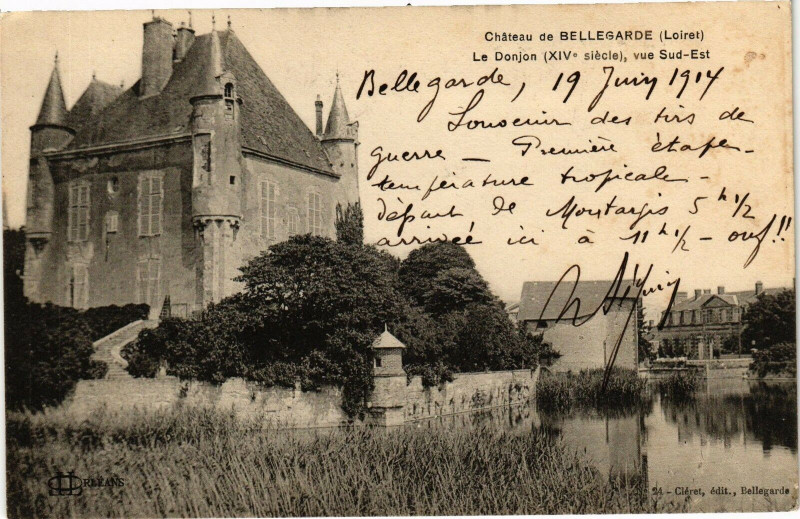 Château de BELLEGARDE (Loiret)
Le Donjon (XIVe siècle), vue Sud-Est
Bellegarde, 19 Juin 1914
Souvenir des tirs de
guerre — Première étape -
température tropicale -
départ de Montargis 5 h 1/2
arrivée ici à 11 h 1/2 - ouf!!
ORLÉANS
24 - Cléret, édit., Bellegarde